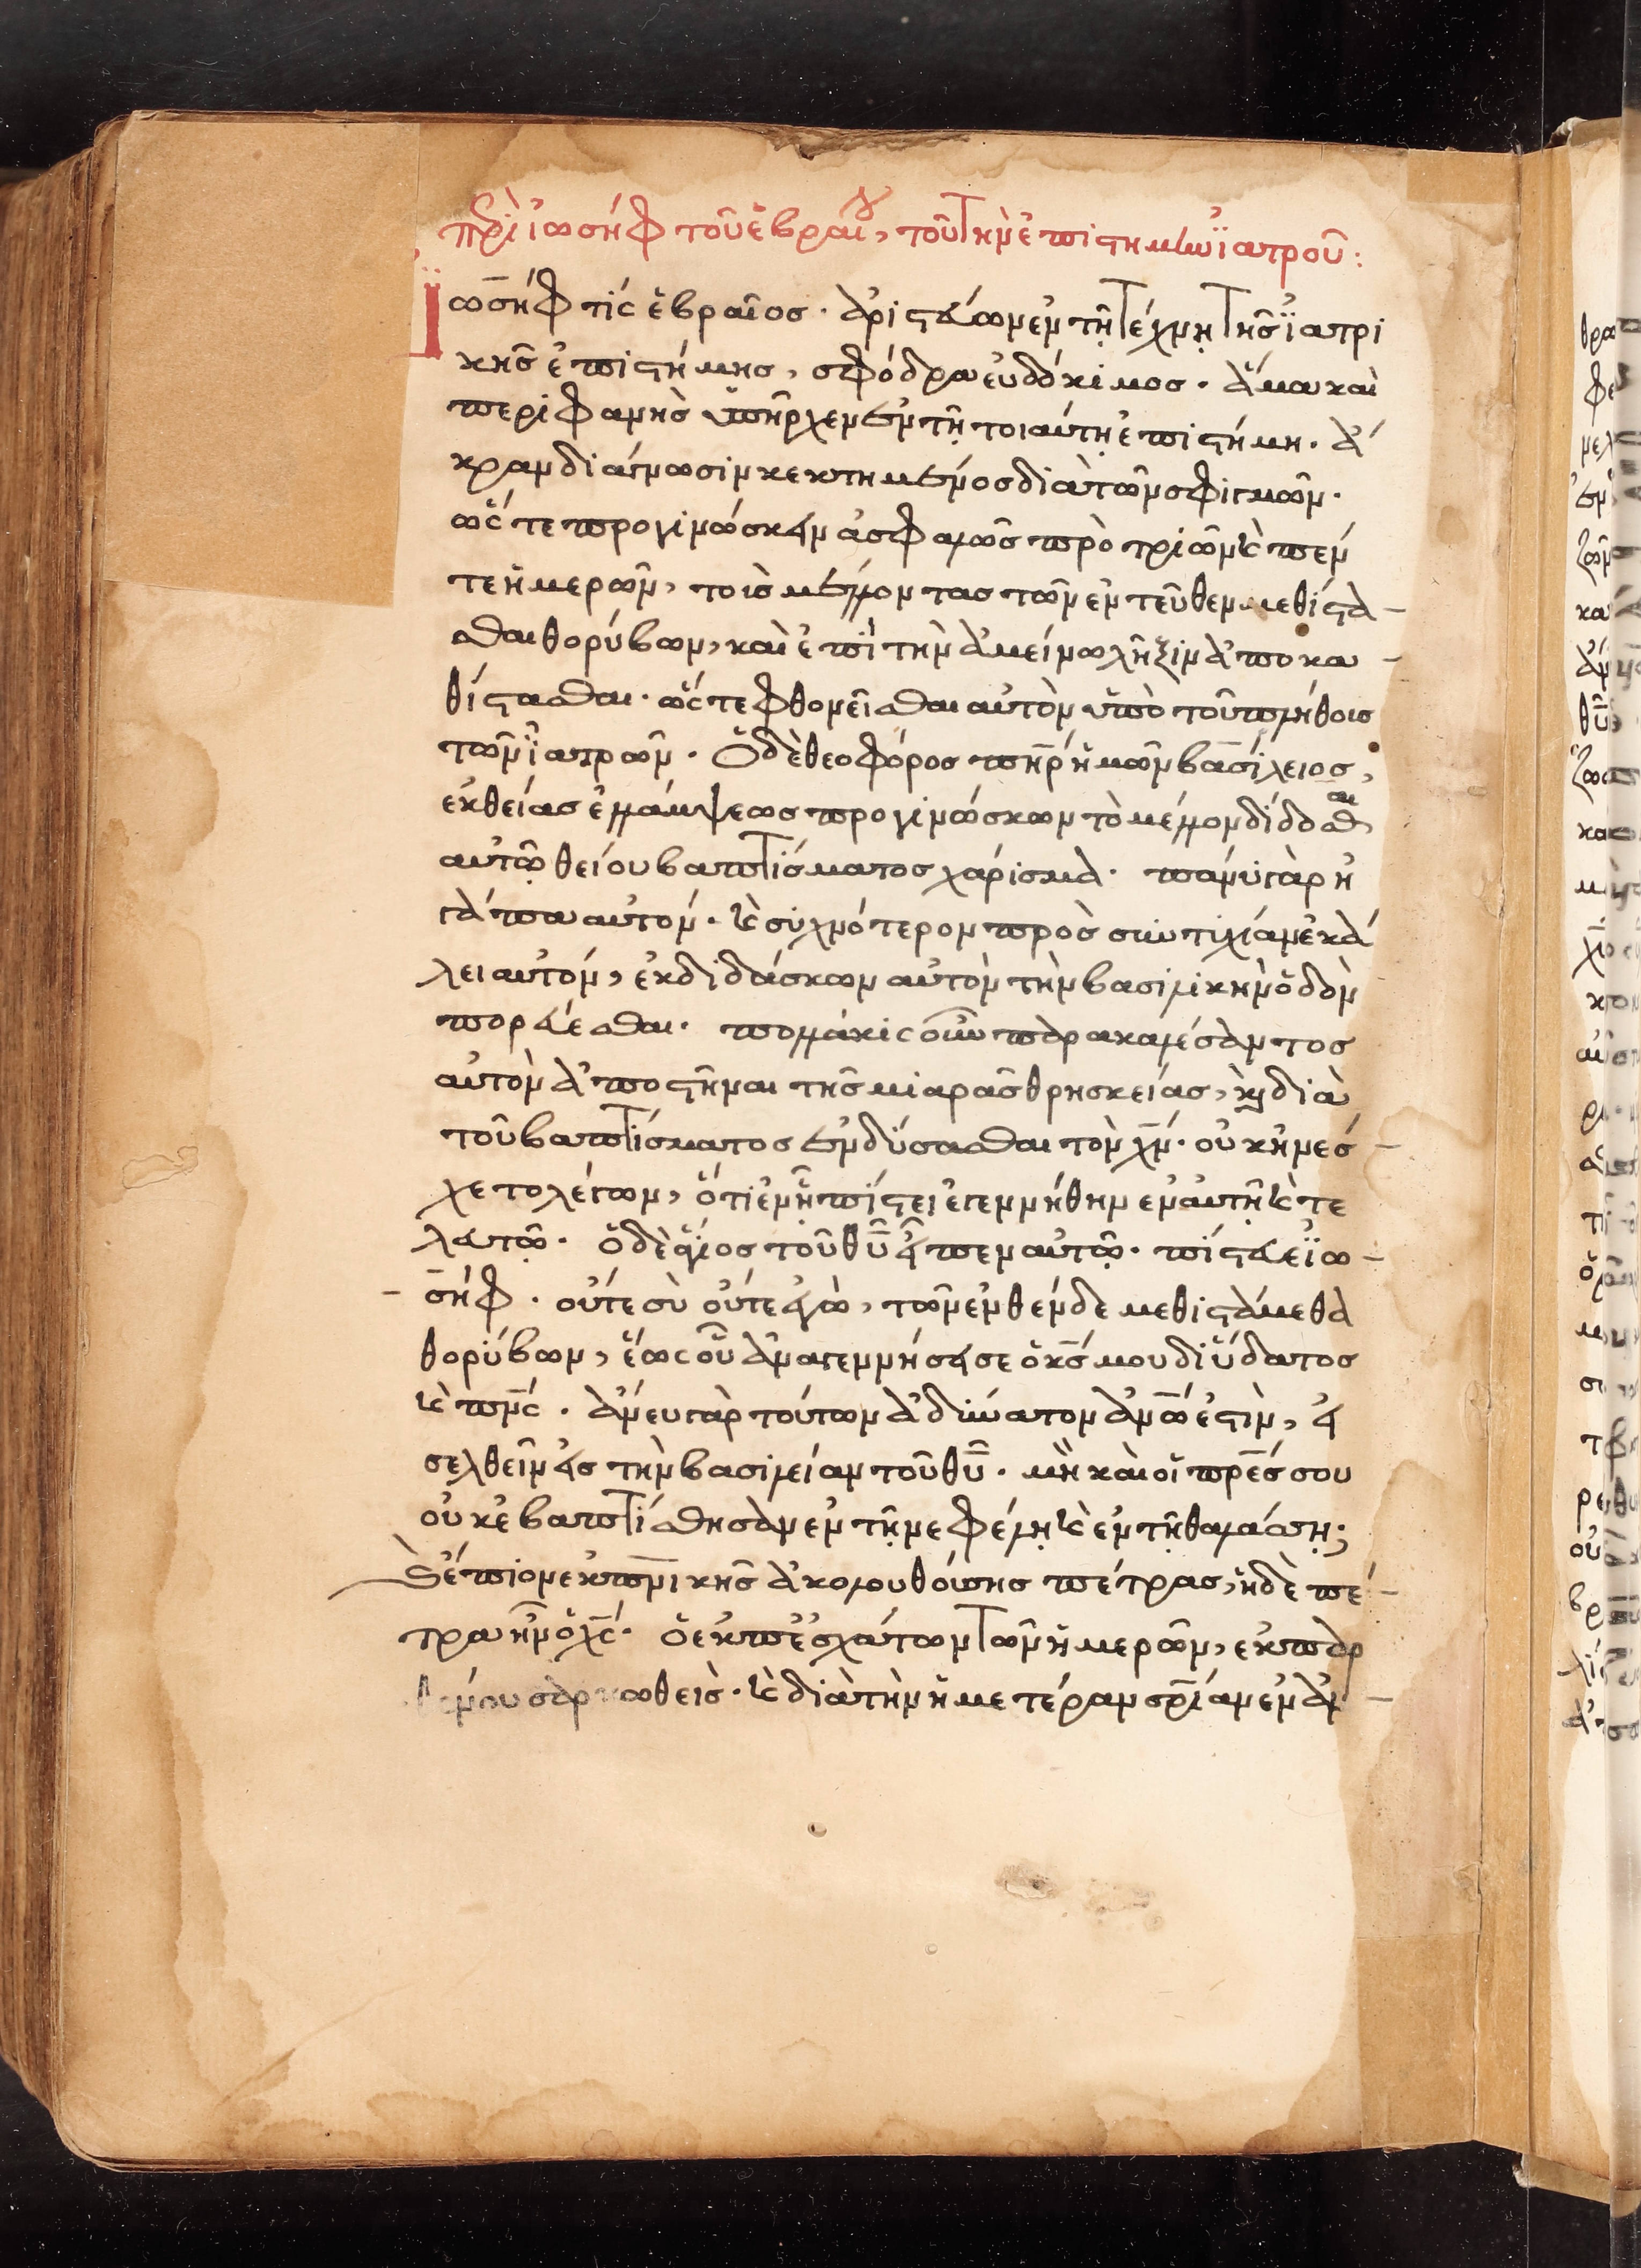 πὲρὶ ἰωσὴφ τοῦ ἑβραίου, τοῦ τὴν ἐπιστήμην ἰατροῦ:
Ἰωσήφ τίς ἑβραῖος· ἀριστεύων ἐν τῆ τέχνη τῆς ἰατρι
κῆς ἐπιστήμης, σφόδρα εὐδόκιμος. ἅμα καὶ
περιφανὴς ὑπῆρχεν ἐν τῆ τοιαύτη ἐπιστήμη. ἄ
κραν διάγνωσιν κεκτημένος διὰ τῶν σφιγμῶν.
ὥς τε προγινώσκειν ἀσφαλῶς πρὸ τριῶν κὲ πέν
τε ἡμερῶν, τοὶς μέλλοντας τῶν ἐντεῦθεν μεθίστα
σθαι θορύβων, καὶ ἐπὶ τὴν ἀμείνω λῆξιν ἀποκα
θίστασθαι. ὥς τε φθονεῖσθαι αὐτὸν ὑπὸ τοῦ πλήθοις
τῶν ἰατρῶν. Ὁ δὲ θεοφόρος π̅η̅ρ̅ ἡμῶν βασίλειος,
ἐκ θείας ἐλλάμψεως προγινώσκων τὸ μέλλον δίδοσθαι
αὐτῶ θείου βαπτίσματος χάρισμα. πάνυ γὰρ ἠ
γάπα αὐτόν. κὲ συχνότερον πρὸς συντιχίαν ἐκά
λει αὐτόν, ἐκδιδάσκων αὐτὸν τὴν βασιλικὴν ὁδὸν
πορεύεσθαι. πολλάκις οὖν παρακαλέσαντος
αὐτὸν ἀποστῆναι τῆς μιαρᾶς θρησκείας, κὴ διὰ
τοῦ βαπτίσματος ἐνδύσασθαι τὸν χ̅ν̅. οὐκ ἠνές
χετο λέγων, ὅτι ἐν ἧ πίστει ἐγεννήθην ἐν αὐτῆ κὲ τε
λευτῶ. ὁ δὲ ἅγιος τοῦ θ̅υ̅ εἶπεν αὐτῶ. πίστευε ἰω
σήφ. οὔτε σὺ οὔτε ἐγὼ, τῶν ἐνθένδε μεθιστάμεθα
θορύβων, ἕως οὗ ἀναγεννήσει σε ὁ κ̅ς̅ μου δι ὕδατος
κὲ π̅ν̅ς̅. ἄνευ γὰρ τούτων ἀδύνατον ἀ̅ν̅ω̅ ἐστὶν, εἰ
σελθεῖν εἰς τὴν βασιλείαν τοῦ θ̅υ̅. μὴ καὶ οἱ π̅ρ̅ε̅ς̅ σου
οὐκ ἐβαπτίσθησαν ἐν τῆ νεφέλη κὲ ἐν τῆ θαλάσση;
κὲ ἔπιον ἐκ π̅ν̅ικῆς ἀκολουθούσης πέτρας, ἡ δὲ πέ
τρα ἦν ὁ χ̅ς̅. ὁ ἐκ πἐσχάτων τῶν ἡμερῶν, ἐκ παρ
θένου σαρκωθεὶς. κὲ διὰ τὴν ἡμετέραν σ̅ρ̅ίαν ἐν ἀν